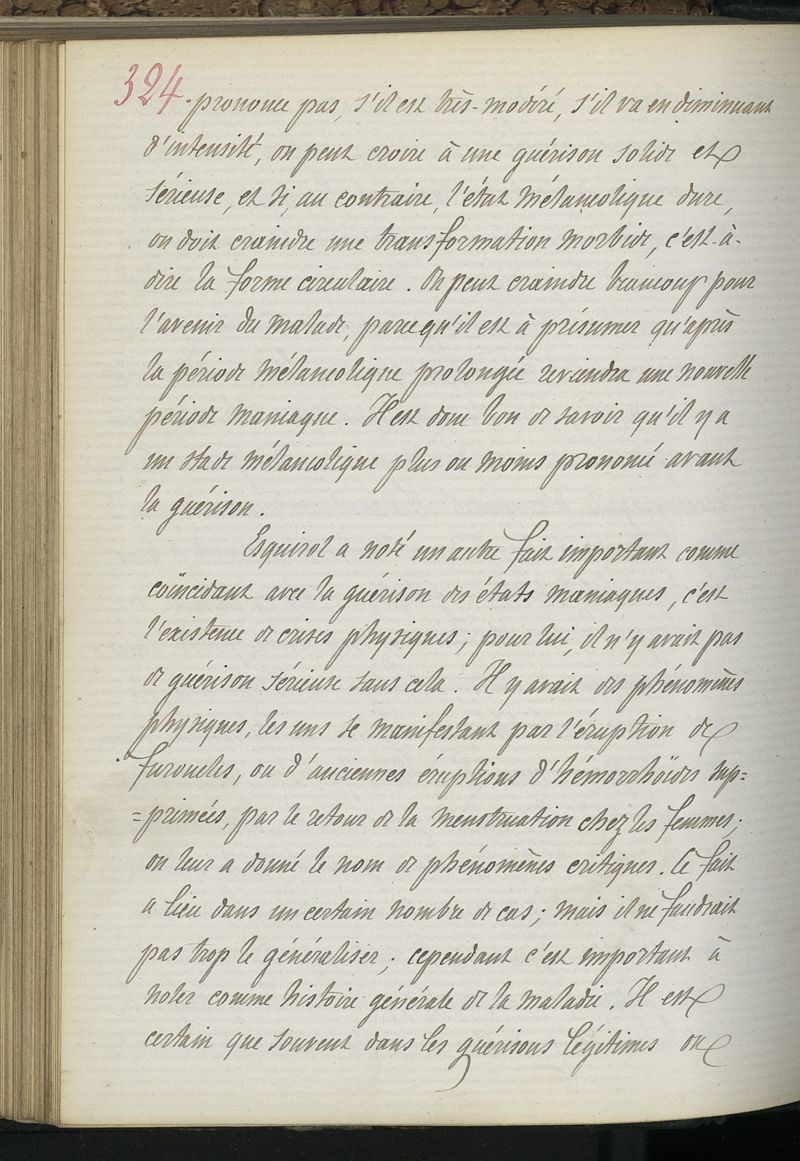 324.
prononce pas, s'il est très-modéré, s'il va en diminuant
d'intensité, on peut croire à une guérison solide et
sérieuse, et si, au contraire, l'état mélancolique dure,
on doit craindre une transformation morbide, c'est-à-
dire la forme circulaire. On peut craindre beaucoup pour
l'avenir du malade, parcequ'il est à présumer qu'après
la période mélancolique prolongée reviendra une nouvelle
période maniaque. Il est donc bon de savoir qu'il y a
un stade mélancolique plus ou moins prononcé avant
la guérison.
Esquirol a noté un autre fait important comme
coïncidant avec la guérison des états maniaques, c'est
l'existence de crises physiques; pour lui, il n'y avait pas
de guérison sérieuse sans cela. Il y avait des phénomènes
physiques, les uns se manifestant par l'éruption de
furoncles, ou d'anciennes éruptions d'hémorrhoïdes sup=
=primées, par le retour de la menstruation chez les femmes;
on leur a donné le nom de phénomènes critiques. Ce fait
a lieu dans un certain nombre de cas; mais il ne faudrait
pas trop le généraliser; cependant c'est important à
noter comme histoire générale de la maladie. Il est
certain que souvent dans les guérisons légitimes on